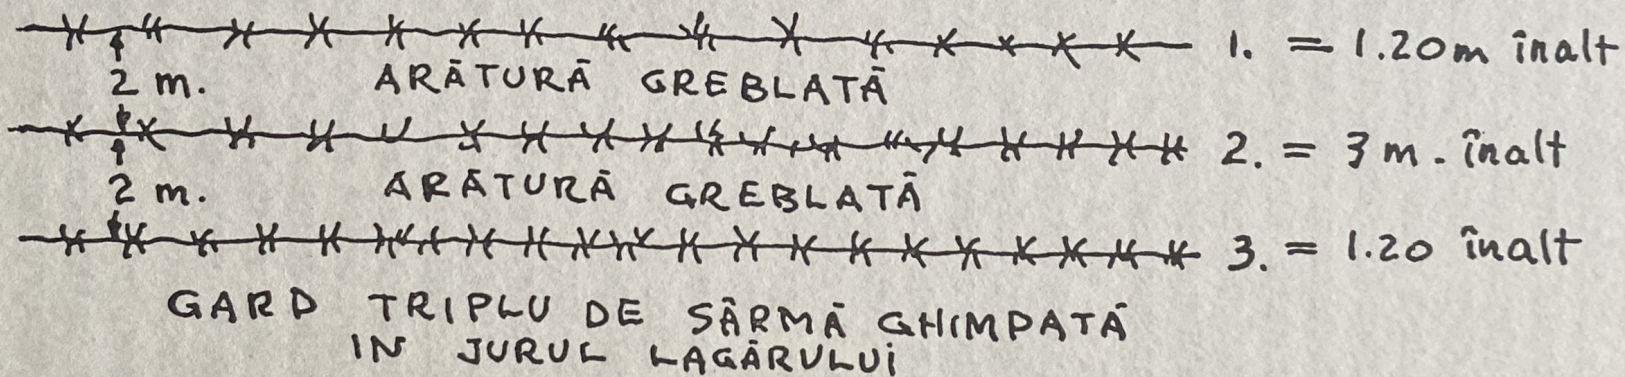 1. = 1.20m înalt
2 m. ARĂTURĂ GREBLATĂ
2. = 3 m. înalt
2 m. ARĂTURĂ GREBLATĂ
3. = 1.20 înalt
GARD TRIPLU DE SÂRMĂ GHIMPATĂ
IN JURUL LAGĂRULUI